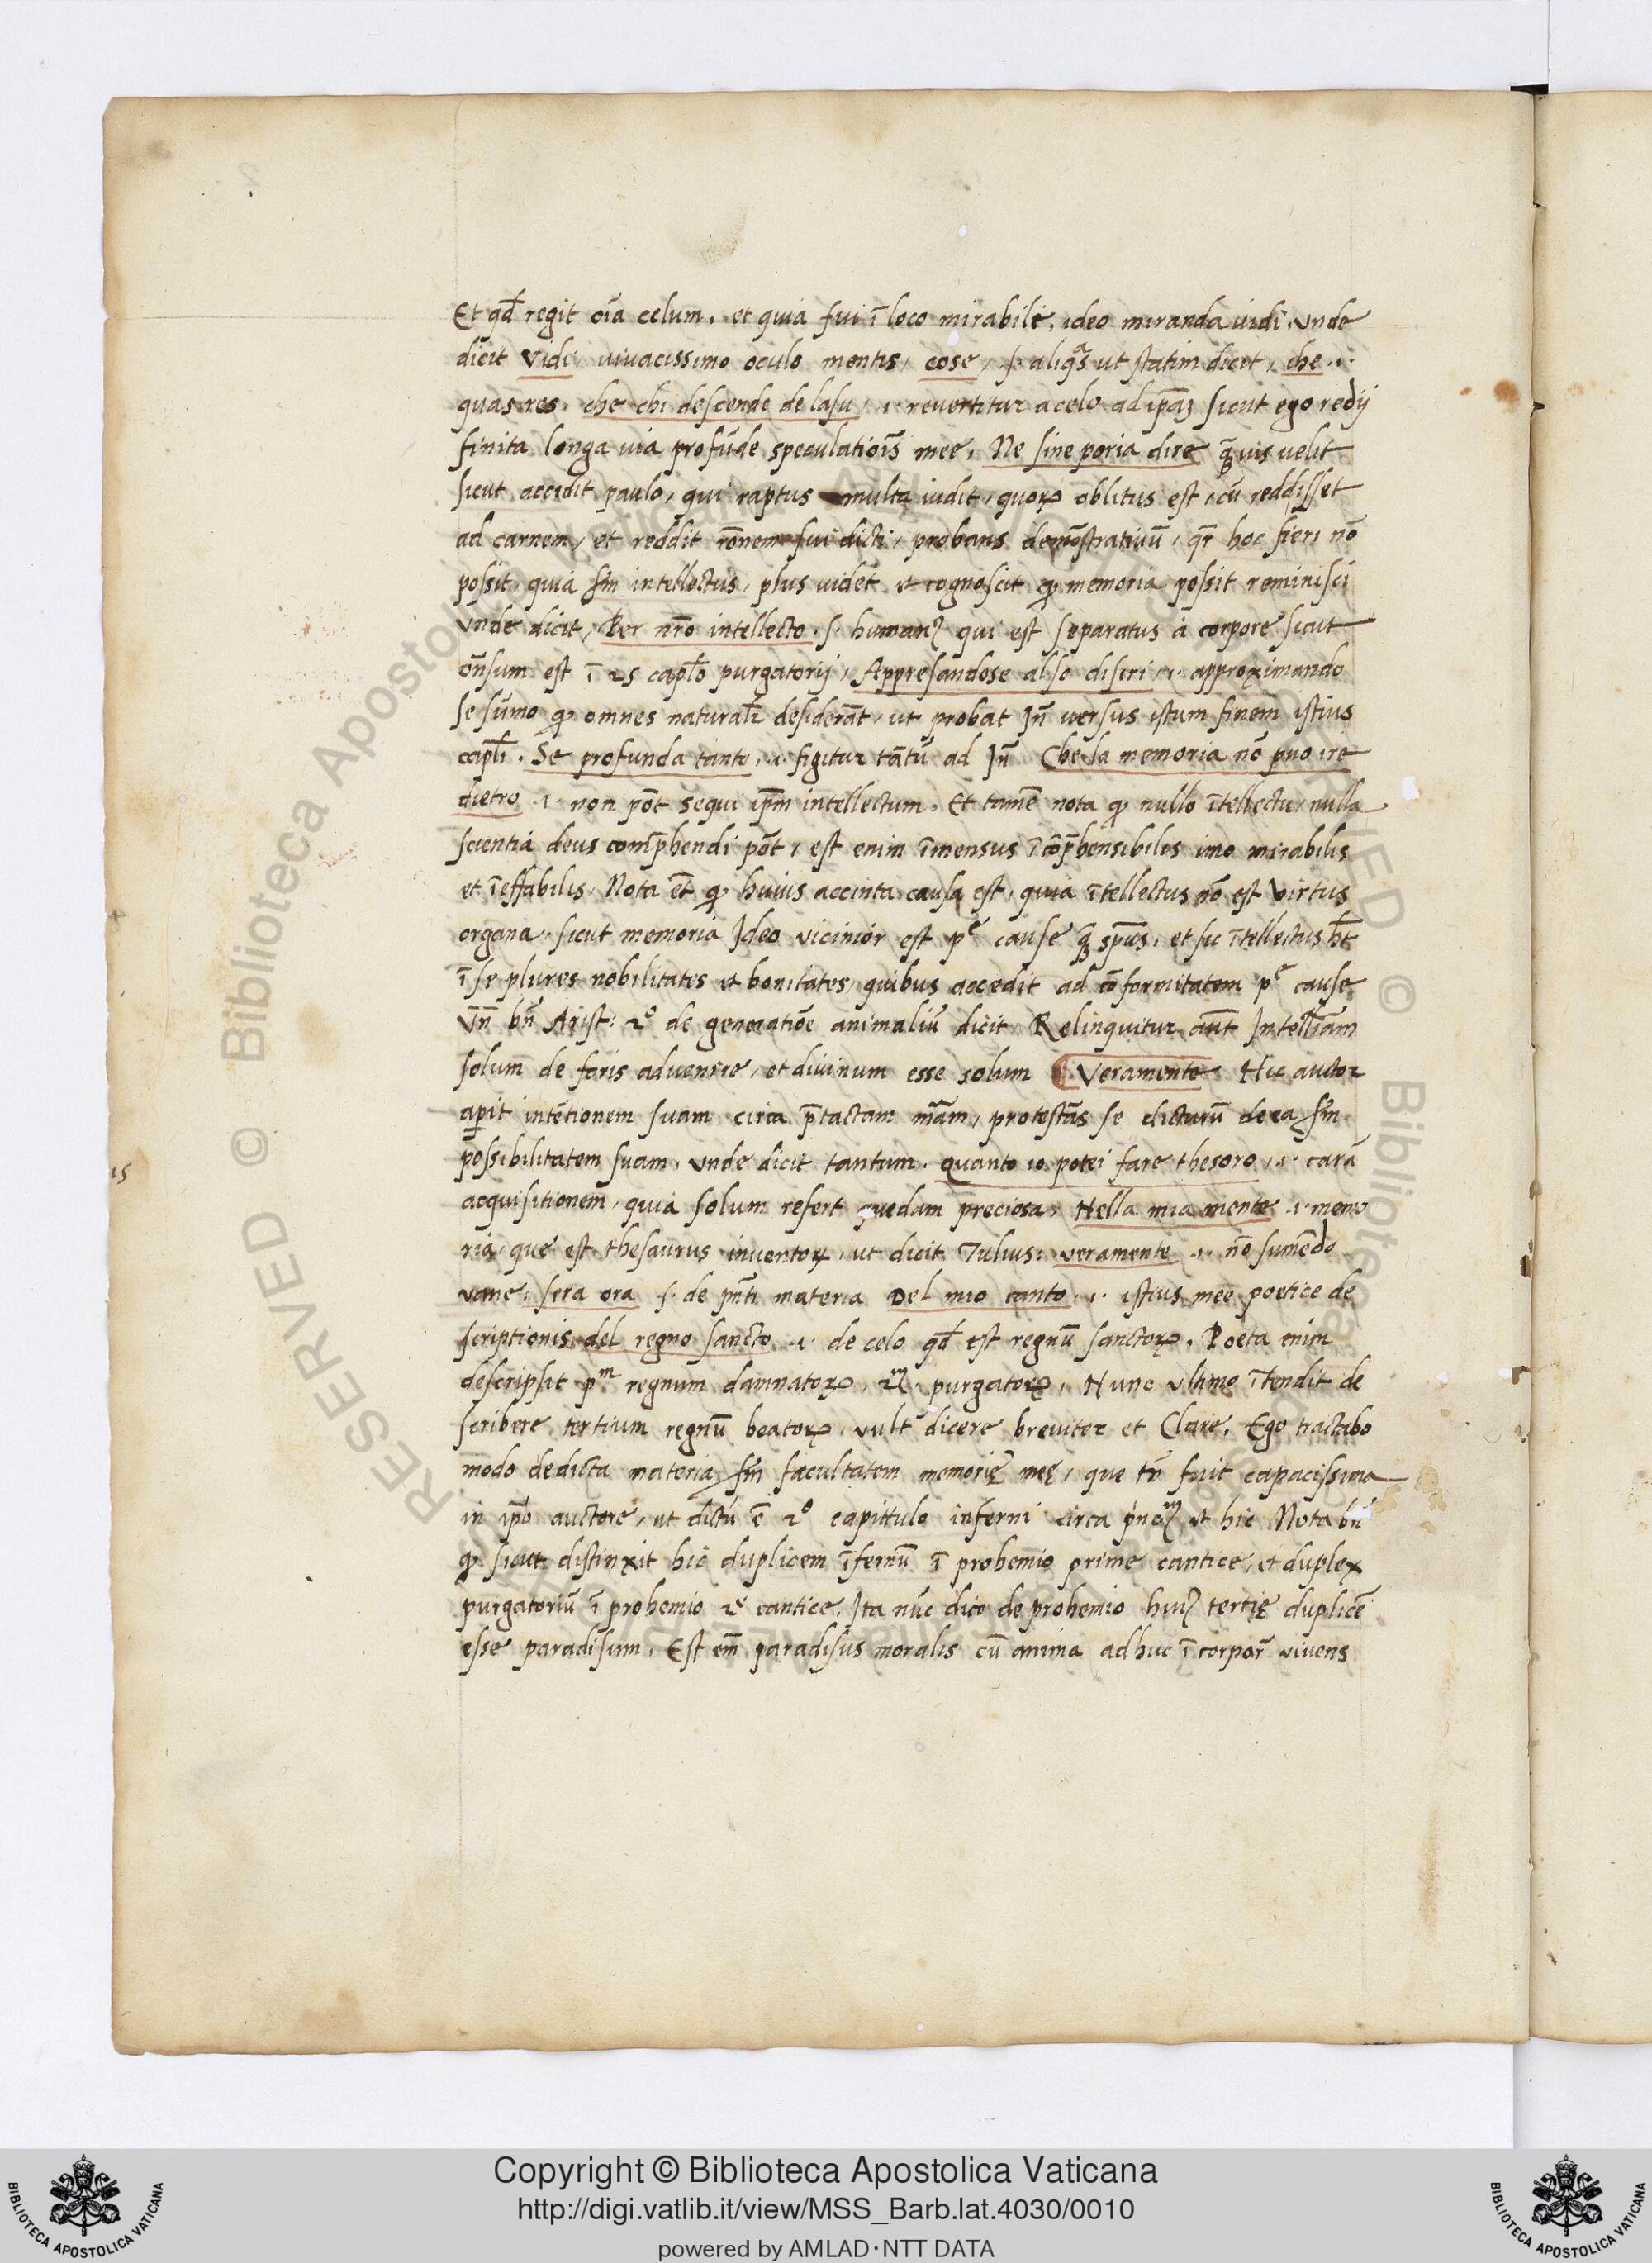 Et qđ regit oīa celum. et quia fui ī loco mirabile, ideo miranda uidi, unde
dicit Vidi, uiuacissimo oculo mentis, cose, .s. aliqas ut statim dicit, che .i.
quas res, che chi descende de lasu, .i. reuertitur a celo ad ipaȝ sicut ego redij
finita longa uia profūde speculatiōis mee, Ne sine poria dire q̄uis uelit
sicut accidit paulo, qui raptus multa uidit, quoꝝ oblitus est, cū reddisset
ad carnem, et reddit rōnem sui dicti, probans demōstratiuū, qr̄ hoc fieri nō
possit, quia sm̄ intellectus, plus uidet et cognoscit ꝙ memoria possit reminisci
Vnde dicit, Per nr̄o intellecto .s. humanꝰ qui est separatus à corpore sicut
oñsum est ī 25 capl̄o purgatorij, Appresandose also disiri, .i. approximando
se sūmo ꝙ omnes natural̄r desiderāt, ut probat Jn̄ uersus istum finem istius
capl̄i. Se profunda tanto, .i. figitur tātū ad Jn̄ Che la memoria nō puo ire
dietro .i. non pōt sequi ip̄m intellectum. Et tamē nota ꝙ nullo ītellectu, nulla
scientia deus comp̄hendi pōt, est enim īmensus īcōp̄hensibilis imo mirabilis
et īeffabilis. Nota et̄ ꝙ huius accinta causa est, quia ītellectus nō est Virtus
organa, sicut memoria Ideo vicinior est pe cause q̄ sp̄us, et sic ītellectus h̄t
ī se plures nobilitates et bonitates, quibus accedit ad cōformitatem pe cause
Vn̄ bn̄ Arist: 2o de generatiōe animaliū dicit Relinquitur aūt Intell̄iam
solum de foris aduenire, et diuinum esse solum Veramente Hic auctor
apit intētionem suam circa p̄tactam māam, protestās se dicturū de ea sm̄
possibilitatem suam, unde dicit tantum. quanto io potei fare thesoro, .i. carā
15
acquisitionem, quia solum refert quedam preciosa, Nella mia mente .i. memo
ria, que est thesaurus inuentoꝝ, ut dicit Tulius: veramente .i. nō sumēdo
vane, sera ora .s. de pn̄ti materia Del mio canto .i. istius mee poetice de
scriptionis del regno sancto .i. de celo qđ est regnū sanctoꝝ. Poeta enim
descripsit pm regnum damnatoꝝ, 2m purgatoꝝ, Nunc ultimo ītendit de
scribere tertium regnū beatoꝝ, uult dicere breuiter et Clare, Ego tractabo
modo de dicta materia sm̄ facultatem memorię meę, que tn̄ fuit capacissima
in ip̄o auctore, ut dictū ē 2o capittulo inferni circa prinȝ, et hic Nota bn̄
ꝙ sicut distinxit hic duplicem īfernū ī prohemio prime cantice, et duplex
purgatoriū ī prohemio 2e cantice, Ita nūc dico de prohemio huiꝰ tertię duplicē
esse paradisum, Est em̄ paradisus moralis cū anima adhuc ī corpor̄ vivens
RESERVED © Biblioteca Apostolica Vaticana
Copyright © Biblioteca Apostolica Vaticana
http://digi.vatlib.it/view/MSS_Barb.lat.4030/0010
powered by AMLAD·NTT DATA
BIBLIOTECA APOSTOLICA VATICANA
BIBLIOTECA APOSTOLICA VATICANA